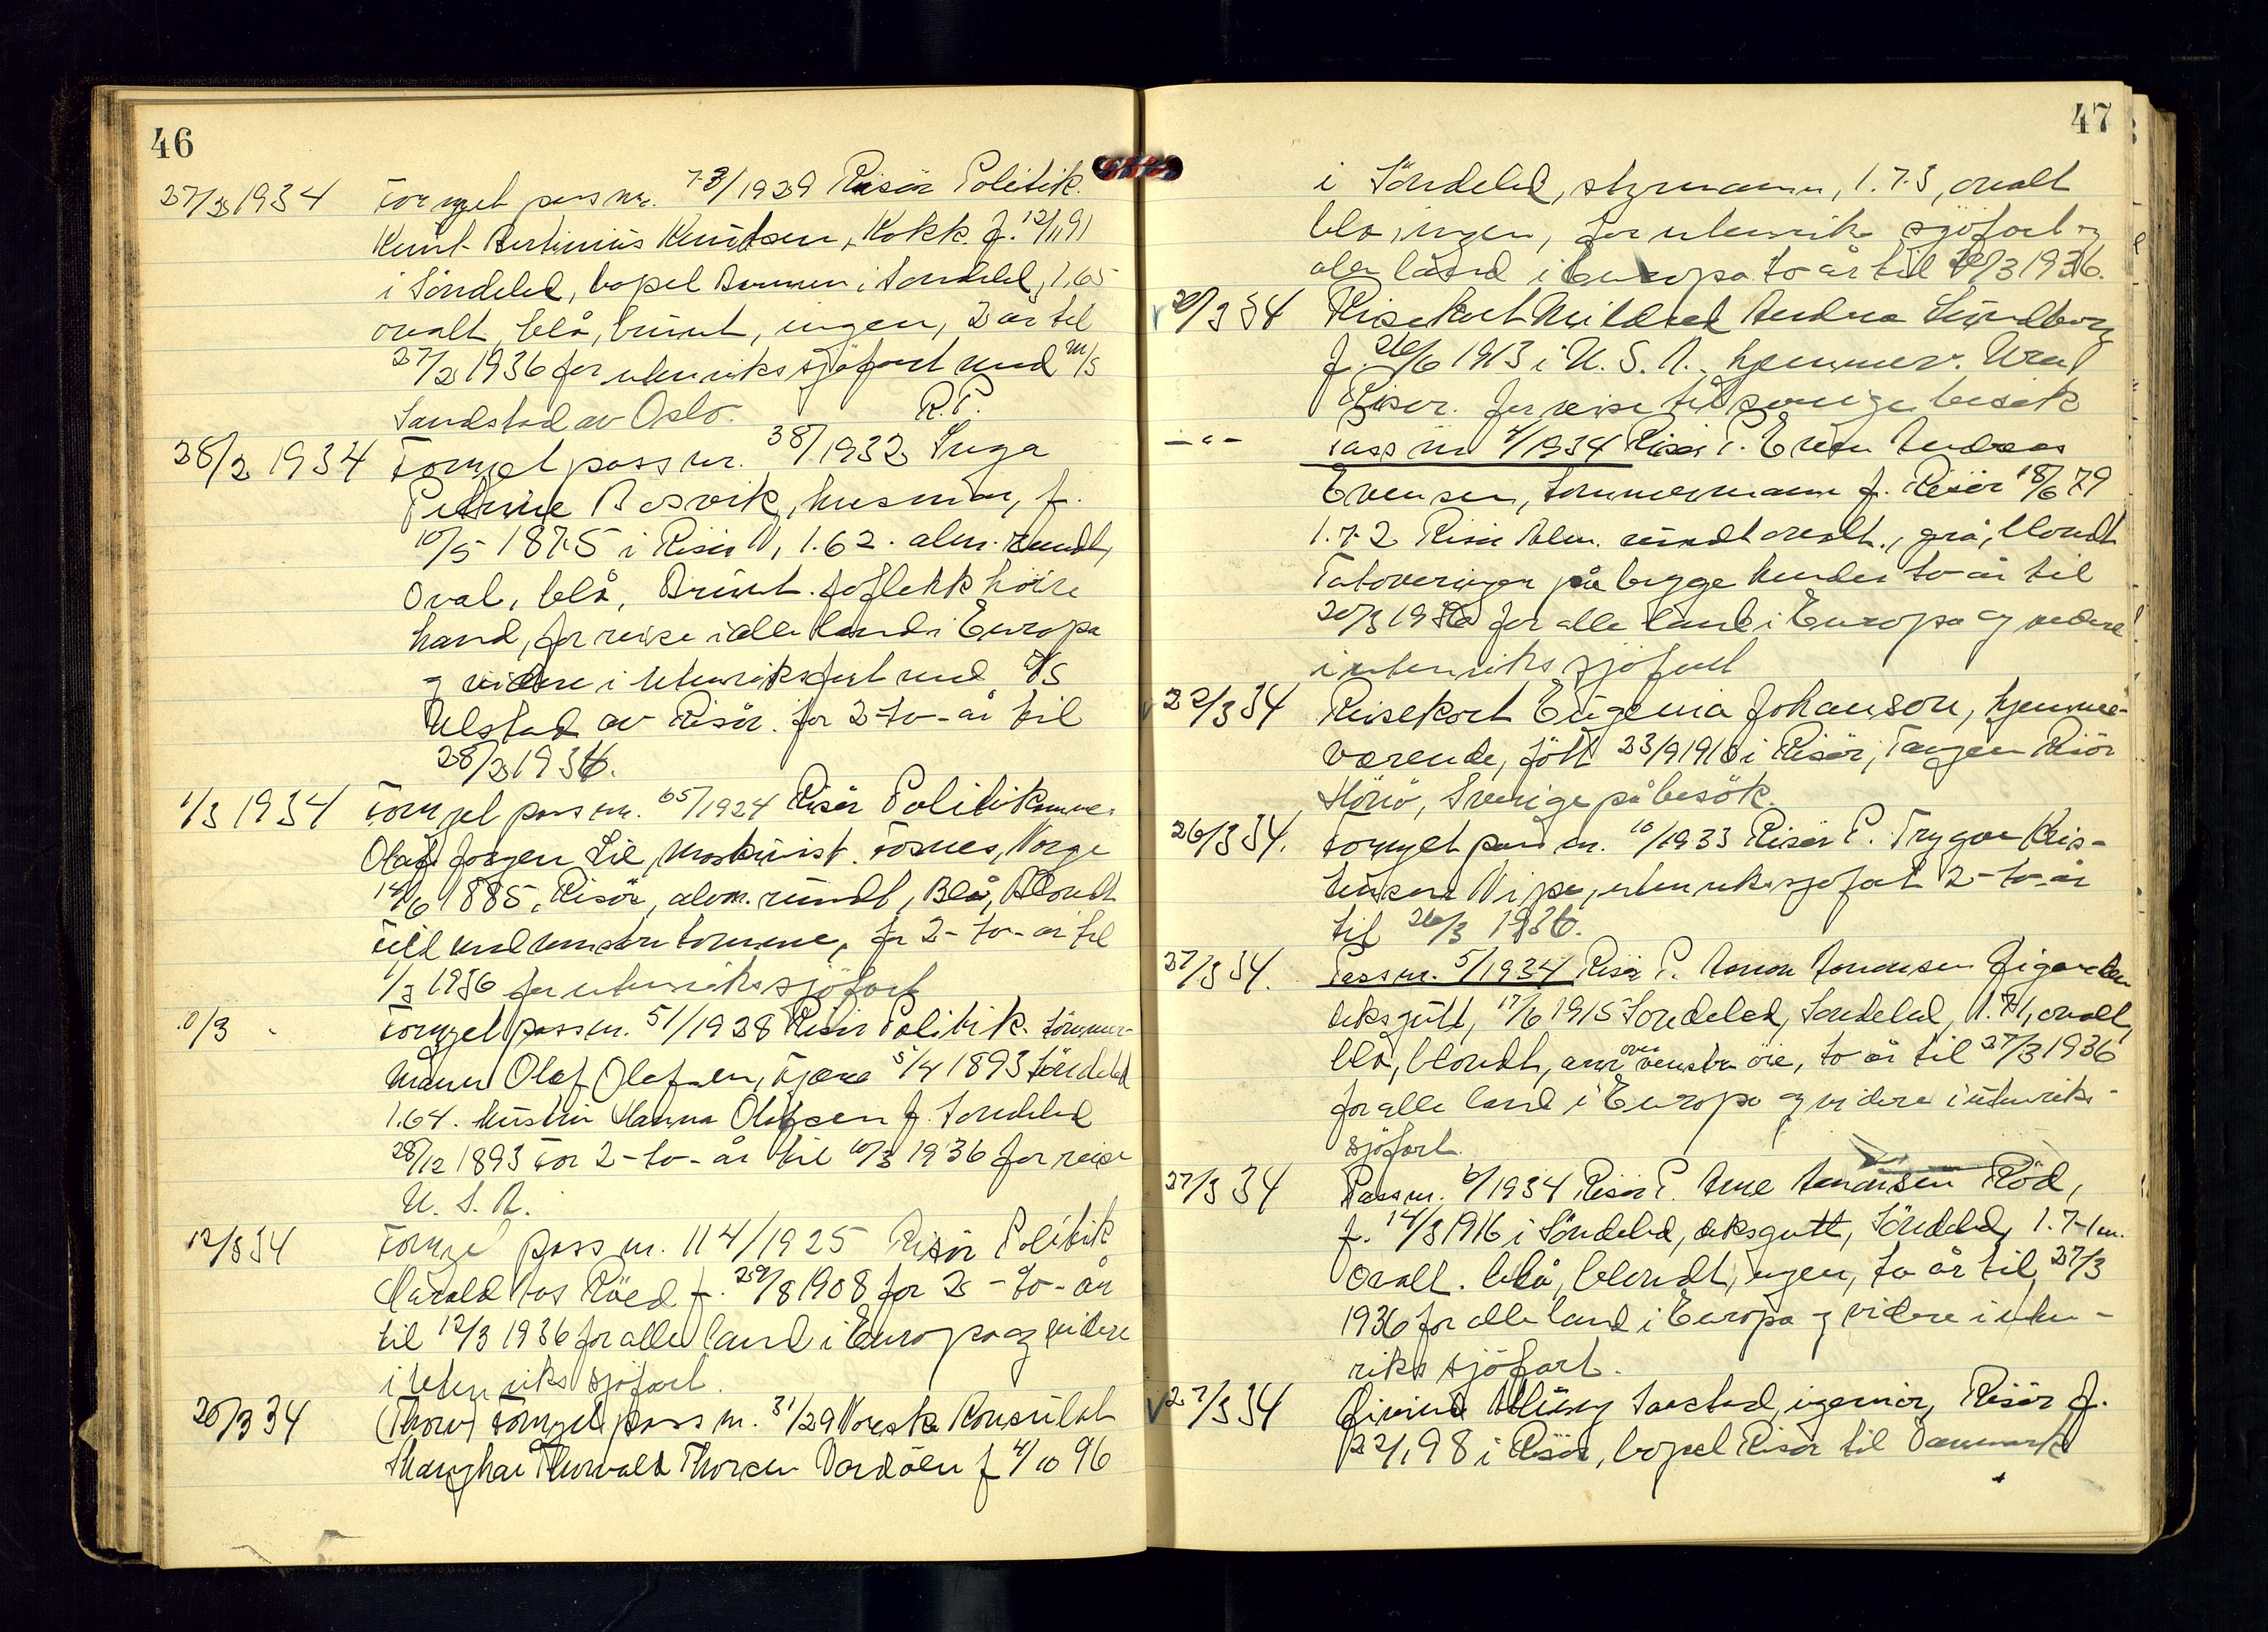 46
27/2 1934 Fornyet pass nr. 73/1929 Risør Politik.
Knut Bertinius Knutsen, Kokk f. 12/1 91
i Söndeled, bopel i Söndeled, 1.65
ovalt, blå, brunt, ingen, 2 år til
27/2 1936 for utenriks sjöfart med M/S
Sandstad av Oslo. R.P.
28/2 1934 Fornyet pass nr. 38/1932 Inga
Petrine Bosvik, husmor, f.
10/5 1875 i Risör N, 1.62. alm. rundt,
Oval, blå, Brunt. föflekk höire
hand, for reise i alle land i Europa
og videre i utenriksfart med D/S
Ulstad av Risör. for 2-to-år til
28/2 1936.
1/3 1934 Fornyet pass nr. 65/1924 Risör Politikamme.
Olaf Jörgen Lie, Maskinist. Fosnes, Norge
14/6 1885, Risör, alm. rundt, Blå, Blondt
Feil ved venstre tomme, for 2-to-år til
1/3 1936 for utenriks sjöfart
10/3 - Fornyet pass nr. 51/1928 Risör Politik. tömmer-
mann Olaf Olafsen, Kjære 5/4 1893 Söndeled
1.64. Hustru Hanna Olafsen f. Söndeled
28/12 1893 For 2-to-år til 10/3 1936 for reise
U. S. A.
12/3 34 Fornyet pass nr. 114/1925 Risör Politik
Harald Aas Röed f. 29/8 1908 for 2-to-år
til 12/3 1936 for alle land i Europa og videre
i utenriks sjöfart.
20/3 34 (Thorv) Fornyet pass nr. 31/29 Norsk Konsulat
Shanghai Thorvald Thorsen Vardöen f 4/10 96
47
i Söndeled, styrmann, 1.73, ovalt
blå, ingen, for utenriks sjöfart og
alle land i Europa to år til 20/3 1936.
20/3 34 Reisekort Mildred Andrea Lundborg
f. 26/6 1913 i U. S. A. hjemmev. Ural
Risør. for reise til Sverige besök
- " - Pass nr 4/1934 Risör P. Even Andreas
Evensen, tömmermann f. Risör 18/6 79
1.72 Risör Alm. rundt ovalt., grå, blondt
Tatoveringer på begge hender to år til
20/3 1936 for alle land i Europa og videre
i utenriks sjöfart
22/3 34 Reisekort Eugenia Johanson, hjemme-
værende, fött 23/9 1916 i Risör, Tangen Risör
Hönö, Sverige på besök.
26/3 34. Fornyet pass nr. 10/1933 Risör P. Trygve Kris-
tensen Vipe, utenriks sjöfart 2-to-år
til 26/3 1936.
27/3 34. Pass nr. 5/1934 Risör P. Aanon Aanonsen
deksgutt, 17/6 1915 Söndeled, Söndeled, 1.71, ovalt,
blå, blondt, arr over venstre öie, to år til 27/3 1936
for alle land i Europa og videre i utenriks-
sjöfart.
27/3 34 Pass nr. 6/1934 Risör P. Arne Aanonsen Röd,
f. 14/3 1916 i Söndeled, deksgutt, Söndeled, 1.71 m.
Ovalt. blå, blondt, ingen, to år til 27/3
1936 for alle land i Europa og videre i uten-
riks sjöfart.
27/3 34 Öivind Saxstad, igeniör, Risör f.
22/1 98 i Risör, bopel Risör til Danmark